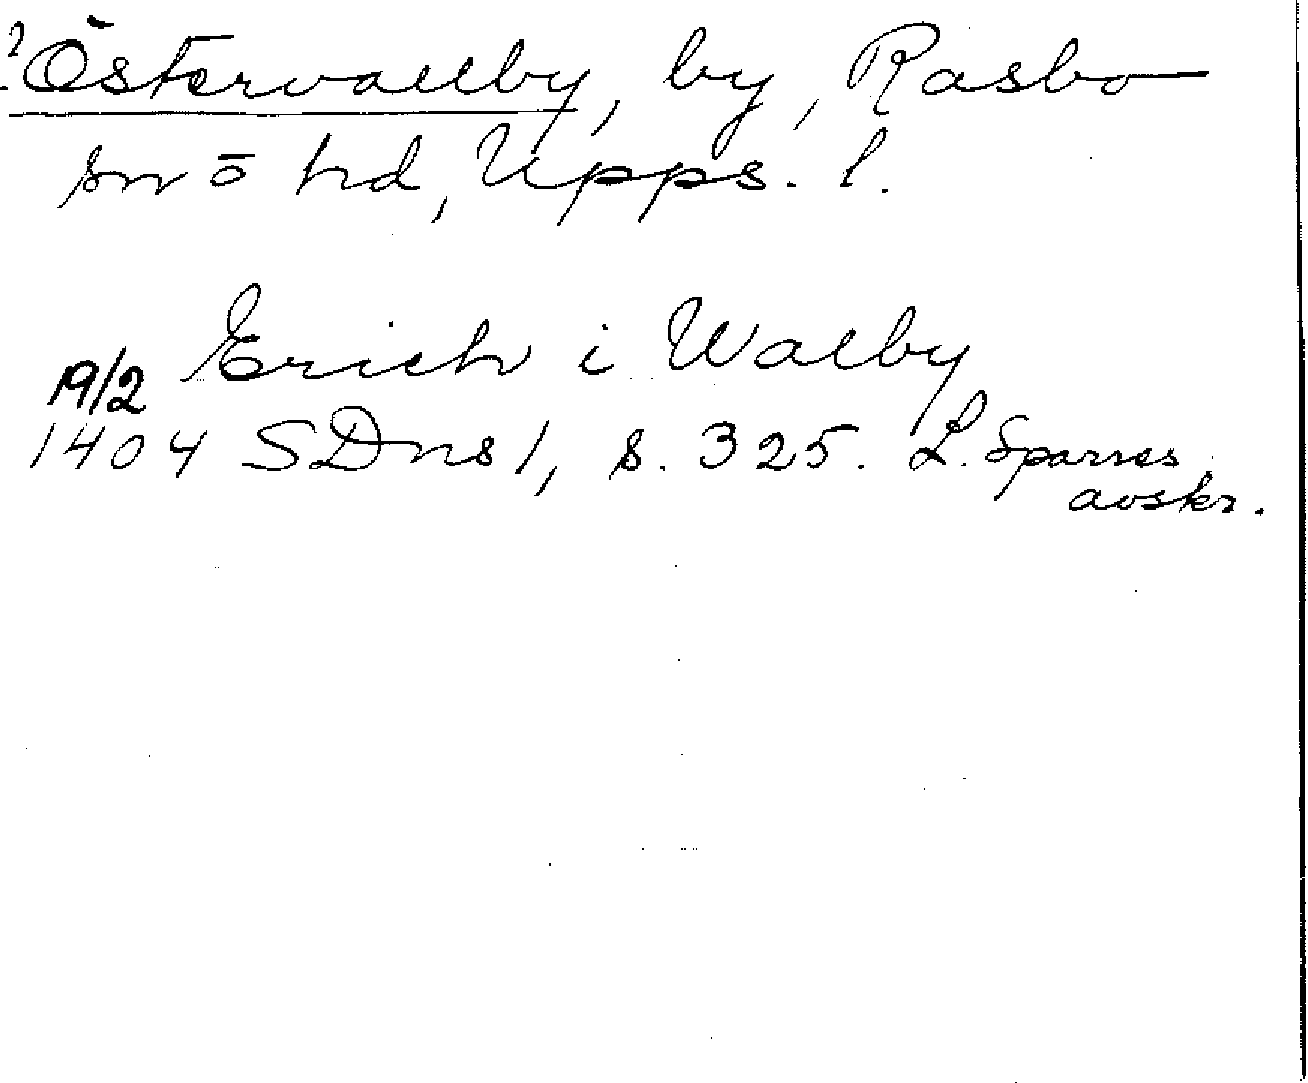 ? Östervallby, by, Rasbo
sn ō hd, Upps. l.
Erich i Walby
19/2
1404 SDns 1, s. 325. L. Sparres
avskr.